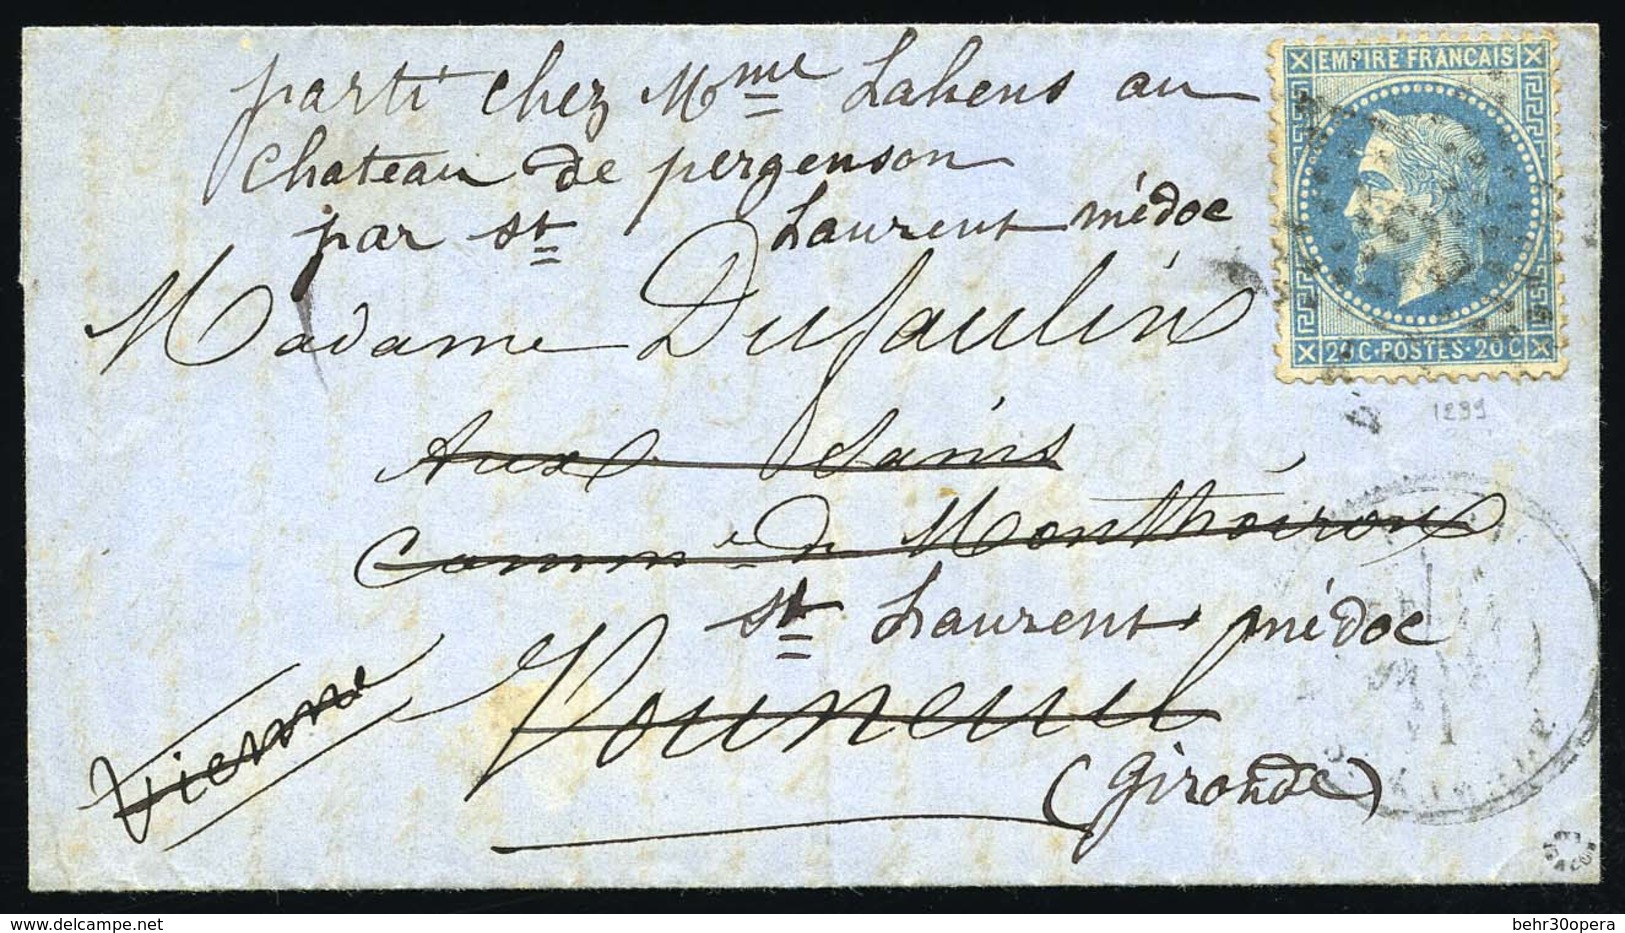 parti chez Mme Lahens au
chateau de pergenson
par st Laurent médoc
Madame Dufaulin
Aux
Commne de Monthoiron
st Laurent médoc
Vouneuil
Vienne
(gironde)
EMPIRE FRANCAIS
20C·POSTES·20C
1299
delcampe.net
behr30opera